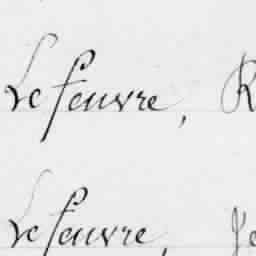 Le feuvre, R
Le feuvre, Je